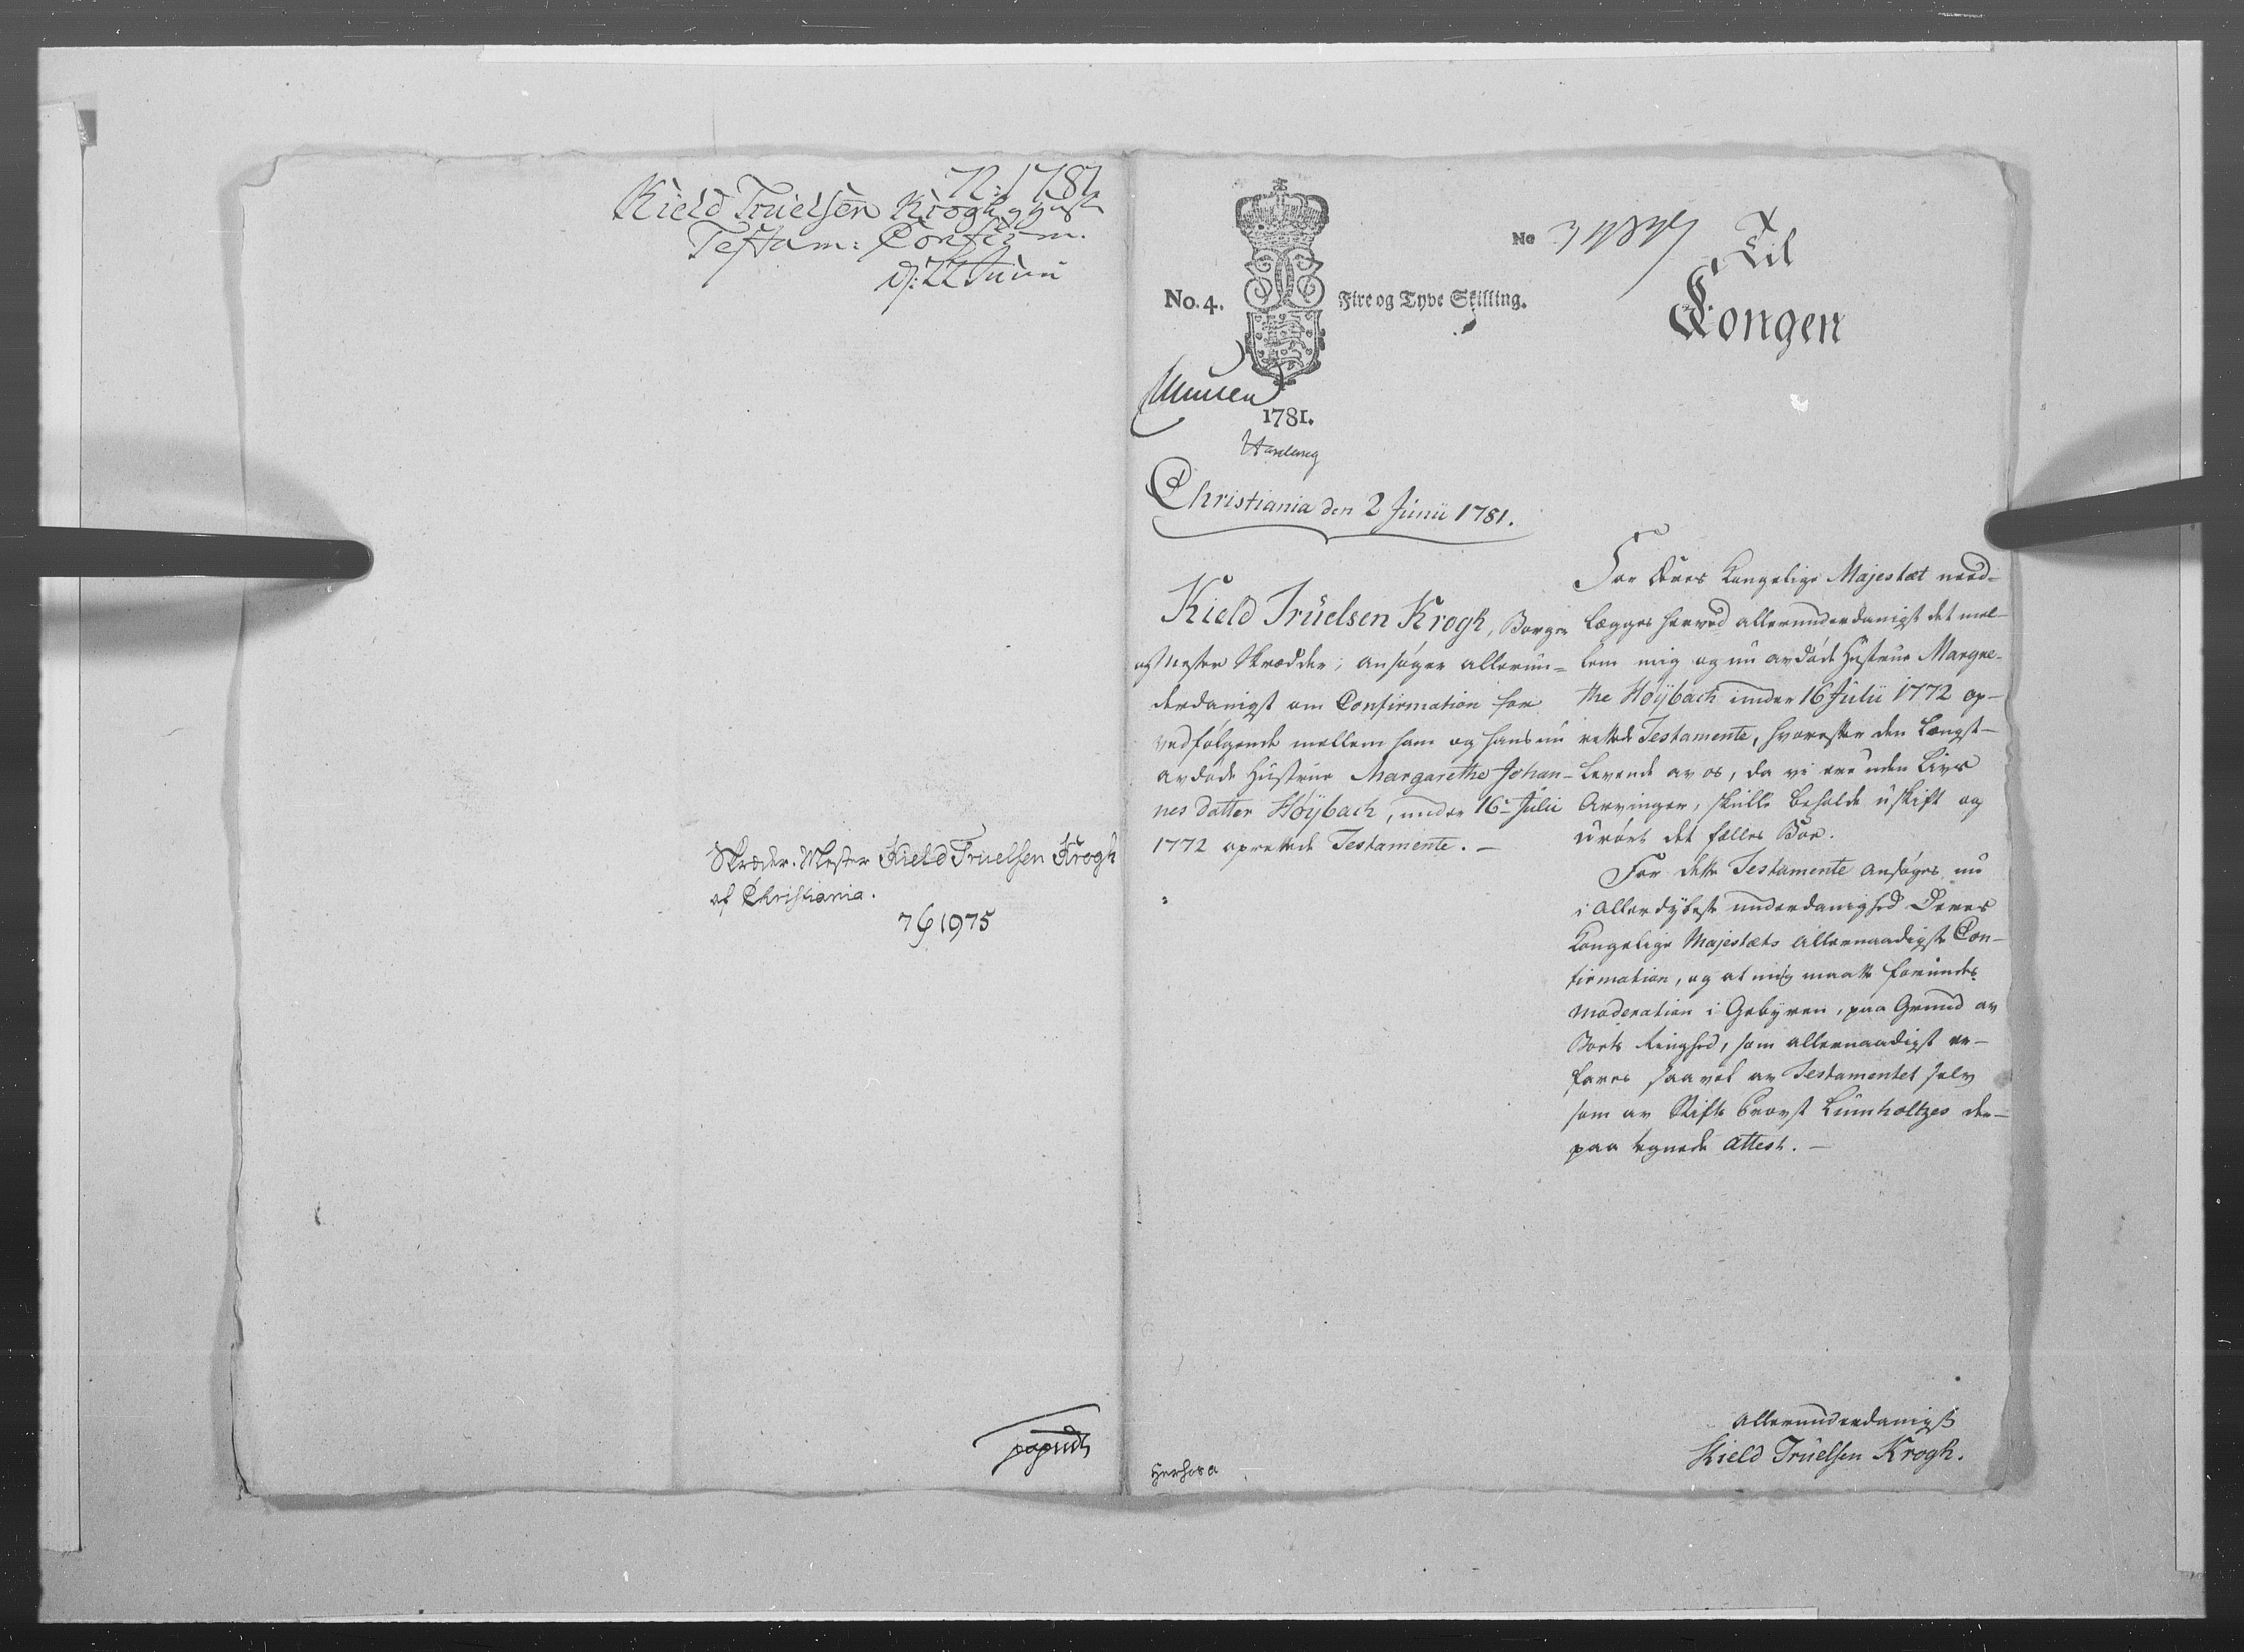 72: 1781
Kield Truelsen Krogh og Hust
Testam: Confirm.
d: 22 Junii
Skræder-Mester Kield Truelsen Krogh
af Christiania.
761975
No. 4.
Fire og Tyve Skilling.
1781.
No
Til
Kongen
Christiania den 2 Junii 1781.
Kield Truelsen Krogh, Borger
og Mester Skrædder, ansøger allerun-
derdanigst om Confirmation for
vedfølgende mellem ham og hans nu
avdøde Hustrue Margarethe Johan-
nes datter Høybach, under 16de Julii
1772 oprettede Testamente. —
For Deres Kongelige Majestæt need-
lægges herved allerunderdanigst det mel-
lem mig og nu avdøde Hustrue Margre-
the Høybach under 16 Julii 1772 op-
rettede Testamente, hvorefter den Længst-
levende av os, da vi ere uden Livs
Arvinger, skulle beholde uskift og
urørt det fælles Boe.
For dette Testamente ansøges nu
i allerdybeste underdanighed Deres
Kongelige Majestæts allernaadigste Con-
firmation, og at mig maatte forundes
Moderation i Gebyren, paa Grund av
Boets Ringhed, som allernaadigst er-
fares saavel av Testamentet selv
som av Stifts Provst Lumholtzes der-
paa tegnede Attest. —
Allerunderdanigst
Kield Truelsen Krogh.